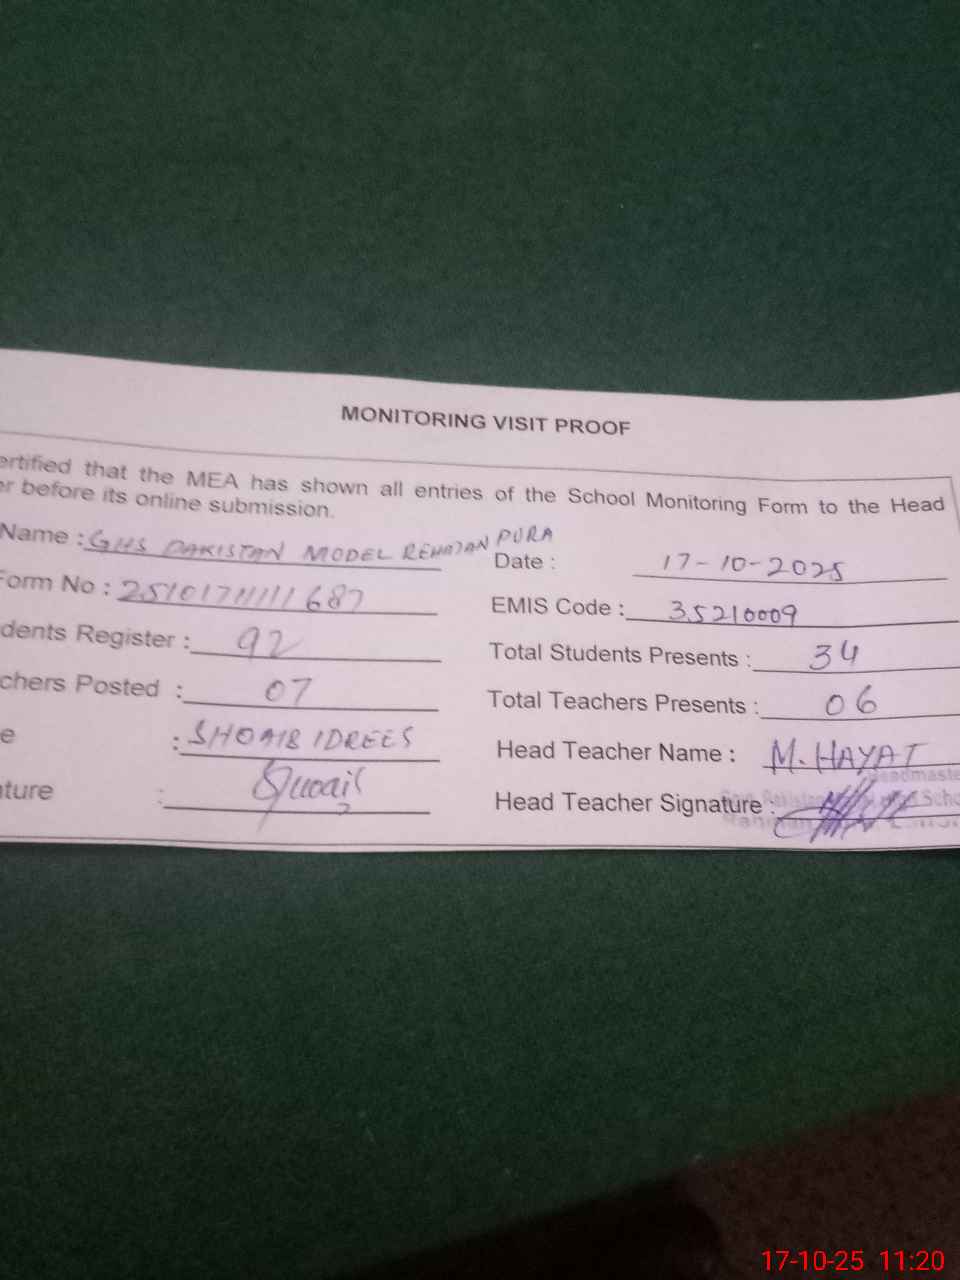 MONITORING VISIT PROOF
ertified that the MEA has shown all entries of the School Monitoring Form to the Head
er before its online submission.
Name : GHS PAKISTAN MODEL REHMAN PURA
Date : 17-10-2025
Form No : 25101711111687
EMIS Code : 35210009
dents Register : 92
Total Students Presents : 34
chers Posted : 07
Total Teachers Presents : 06
e : SHOAIB IDREES
Head Teacher Name : M. HAYAT
ture : Shoaib
Head Teacher Signature :
Headmaste
17-10-25 11:20